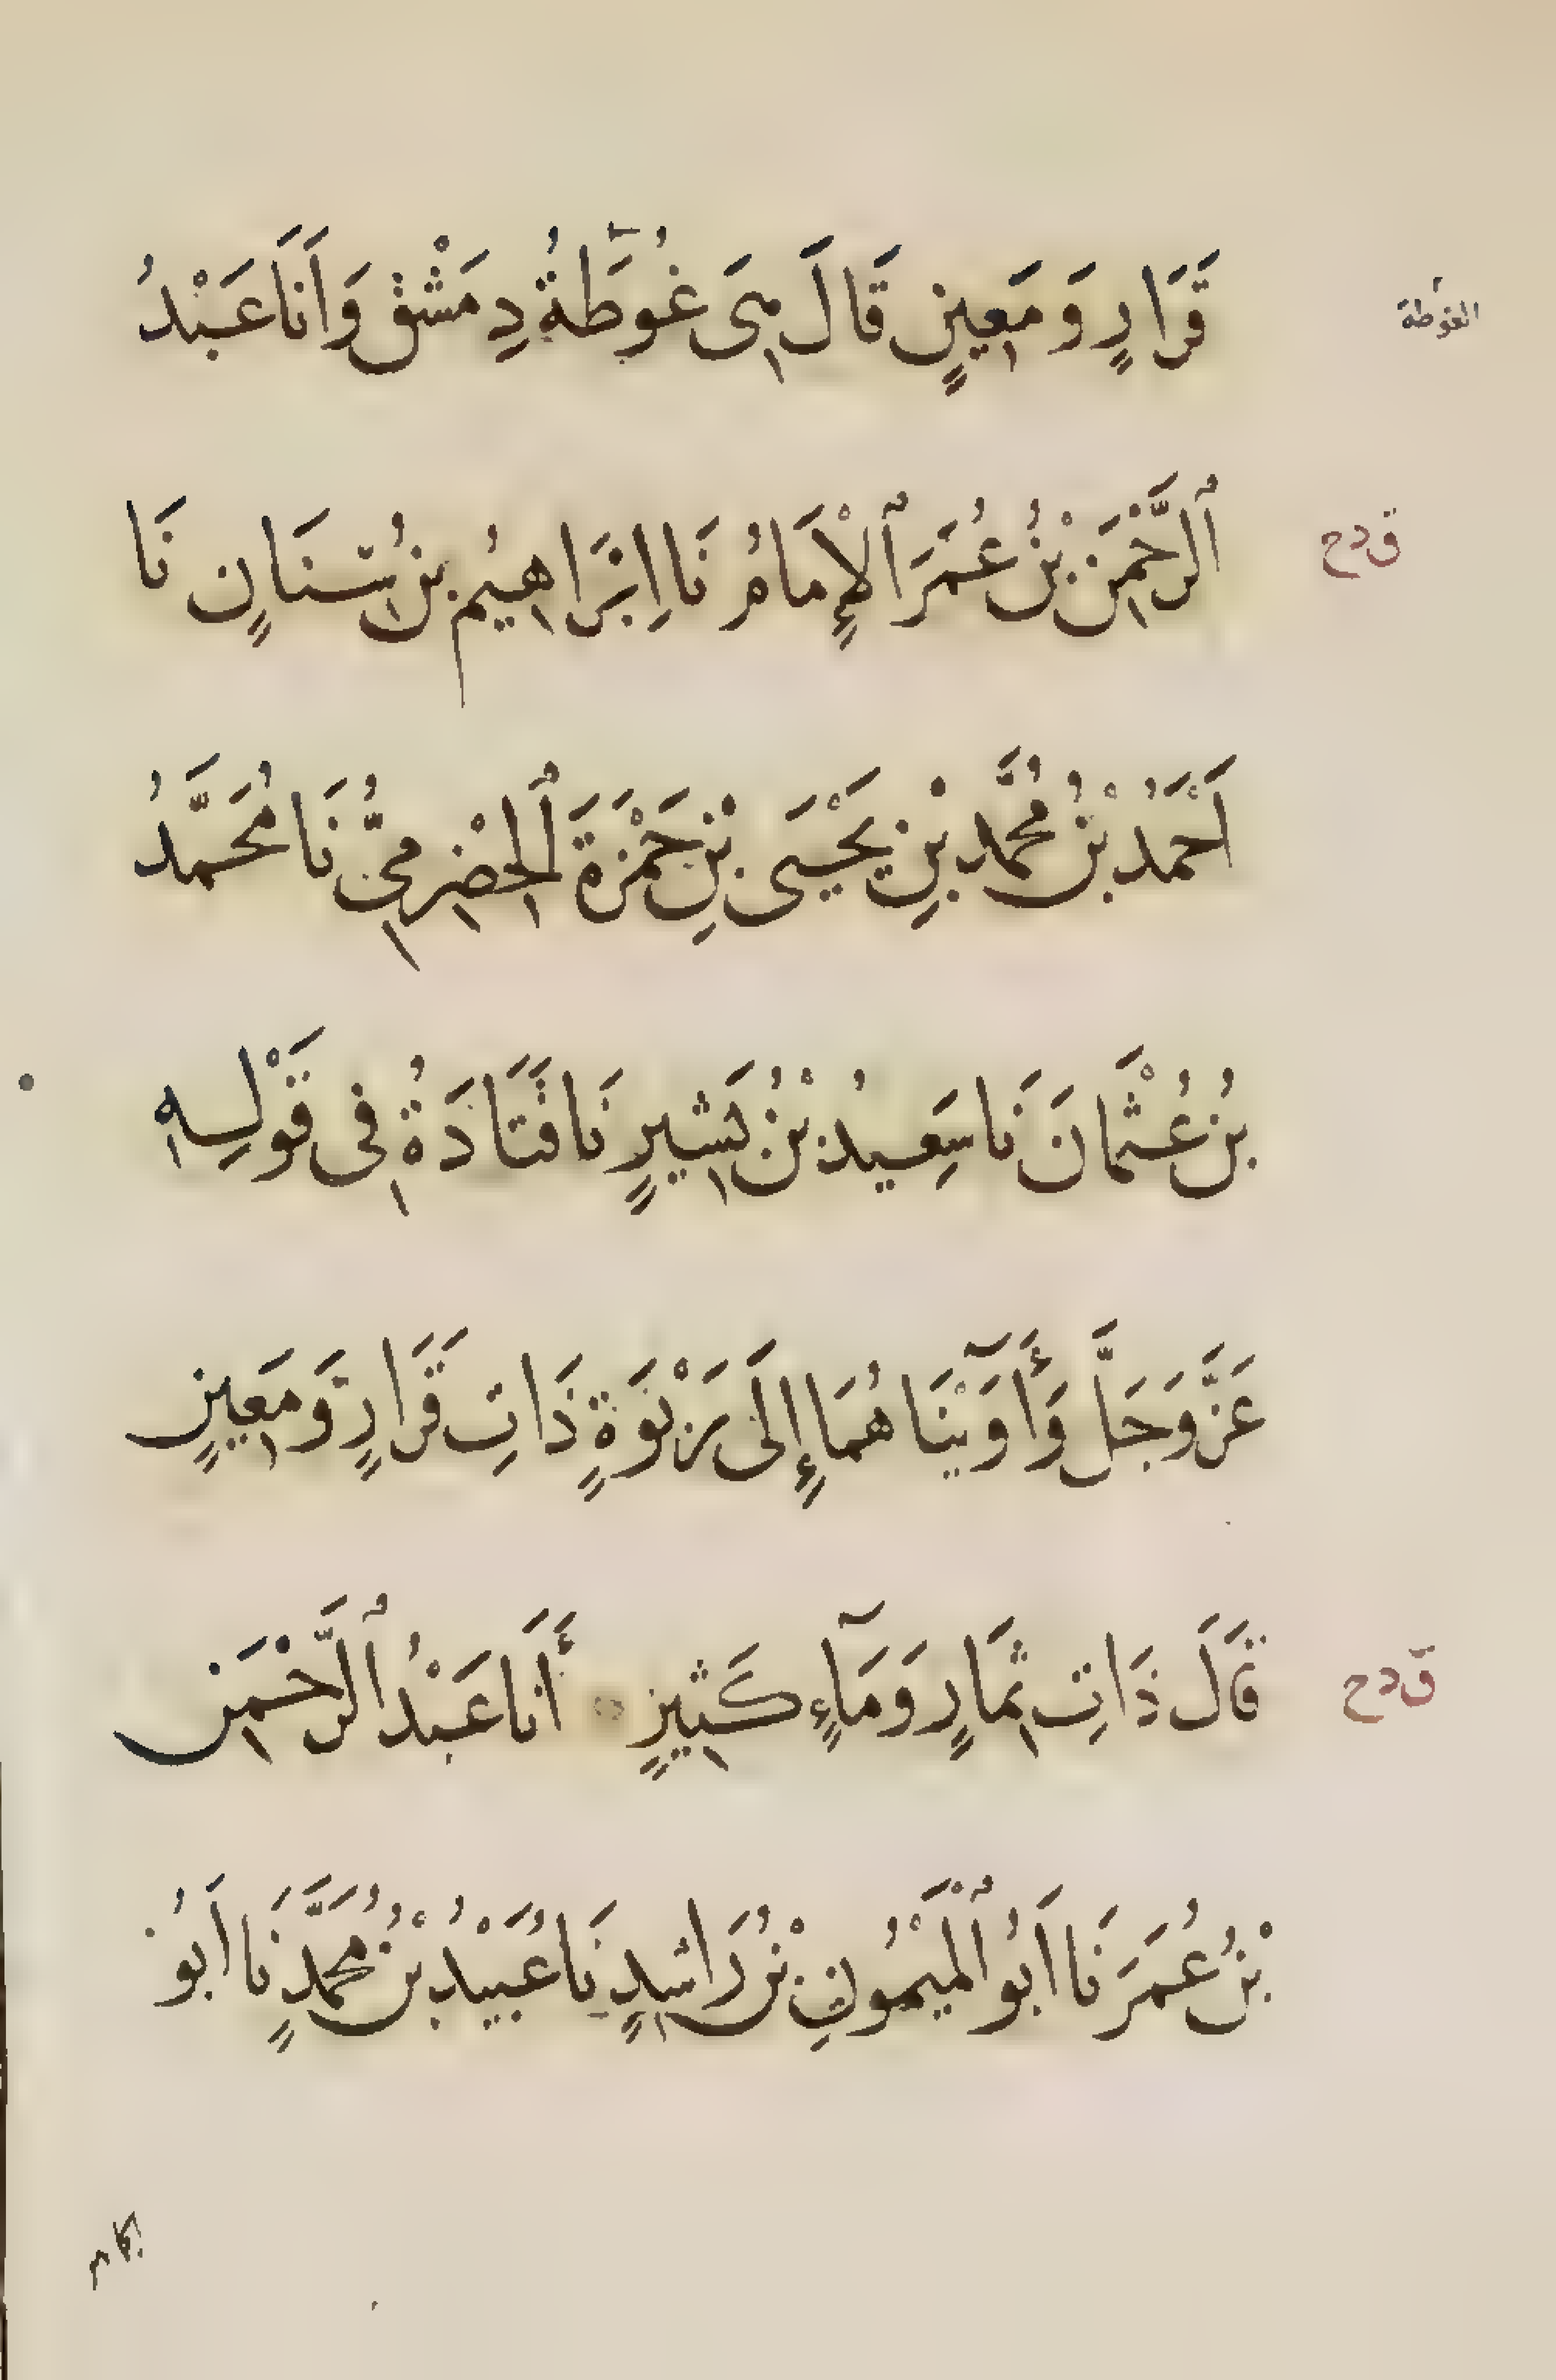 قَرَارٍ وَمَعِينٍ قَالَ هِىَ غُوطَةُ دِمَشْقَ وَأَنَا عَبْدُ
الغوطة
ٱلرَّحْمٰنِ بْنُ عُمَرَ ٱلْإِمَامُ نَا إِبْرَاهِيمُ بْنُ سِنَانٍ نَا
ق د ح
أَحْمَدُ بْنُ مُحَمَّدِ بْنِ يَحْيَى بْنِ حَمْزَةَ ٱلْحَضْرَمِىُّ نَا مُحَمَّدُ
بْنُ عُثْمَانَ نَا سَعِيدُ بْنُ بَشِيرٍ نَا قَتَادَةُ فِى قَوْلِهِ
عَزَّ وَجَلَّ وَأٓوَيْنَاهُمَا إِلَى رَبْوَةٍ ذَاتِ قَرَارٍ وَمَعِينٍ
قَالَ ذَاتِ ثِمَارٍ وَمَآءٍ كَثِيرٍ أَنَا عَبْدُ ٱلرَّحْمٰنِ
ق د ح
بْنُ عُمَرَ نَا أَبُو ٱلْمَيْمُونِ بْنُ رَاشِدٍ نَا عُبَيْدُ بْنُ مُحَمَّدٍ نَا أَبُو